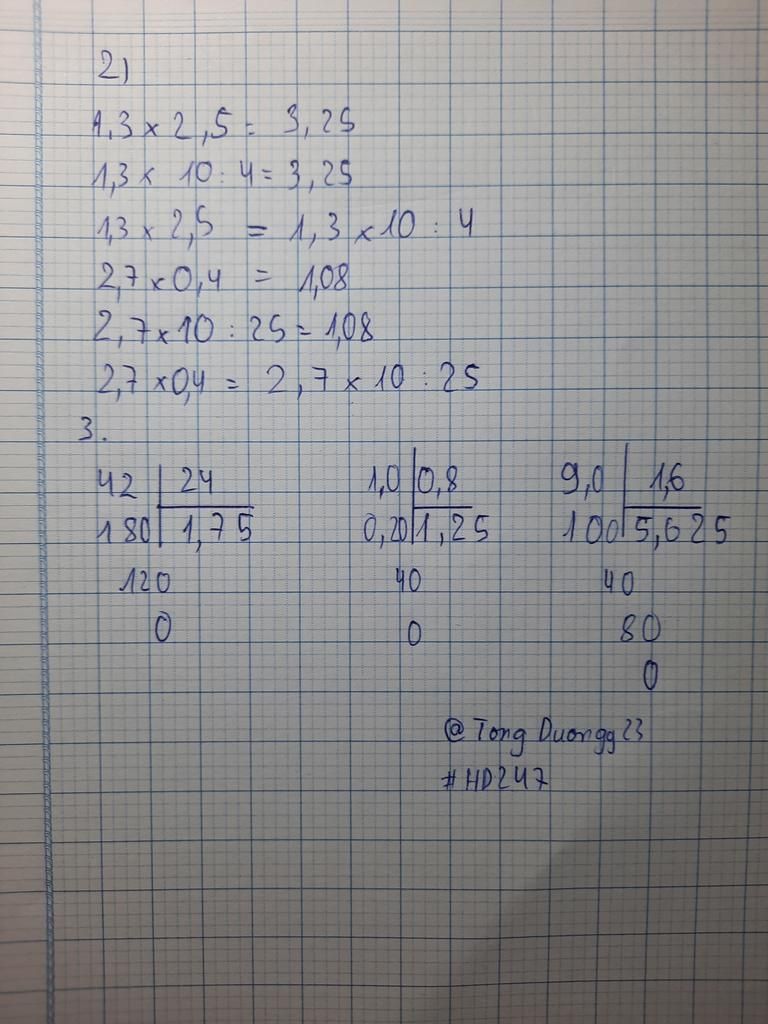 2)
1,3 x 2,5 = 3,25
1,3 x 10 : 4 = 3,25
1,3 x 2,5 = 1,3 x 10 : 4
2,7 x 0,4 = 1,08
2,7 x 10 : 25 = 1,08
2,7 x 0,4 = 2,7 x 10 : 25
3.
42 | 24 1,0 | 0,8 9,0 | 1,6
180 | 1,75 0,20 | 1,25 100 | 5,625
120 40 40
0 0 80
0
@Tong Duongg23
#HD247